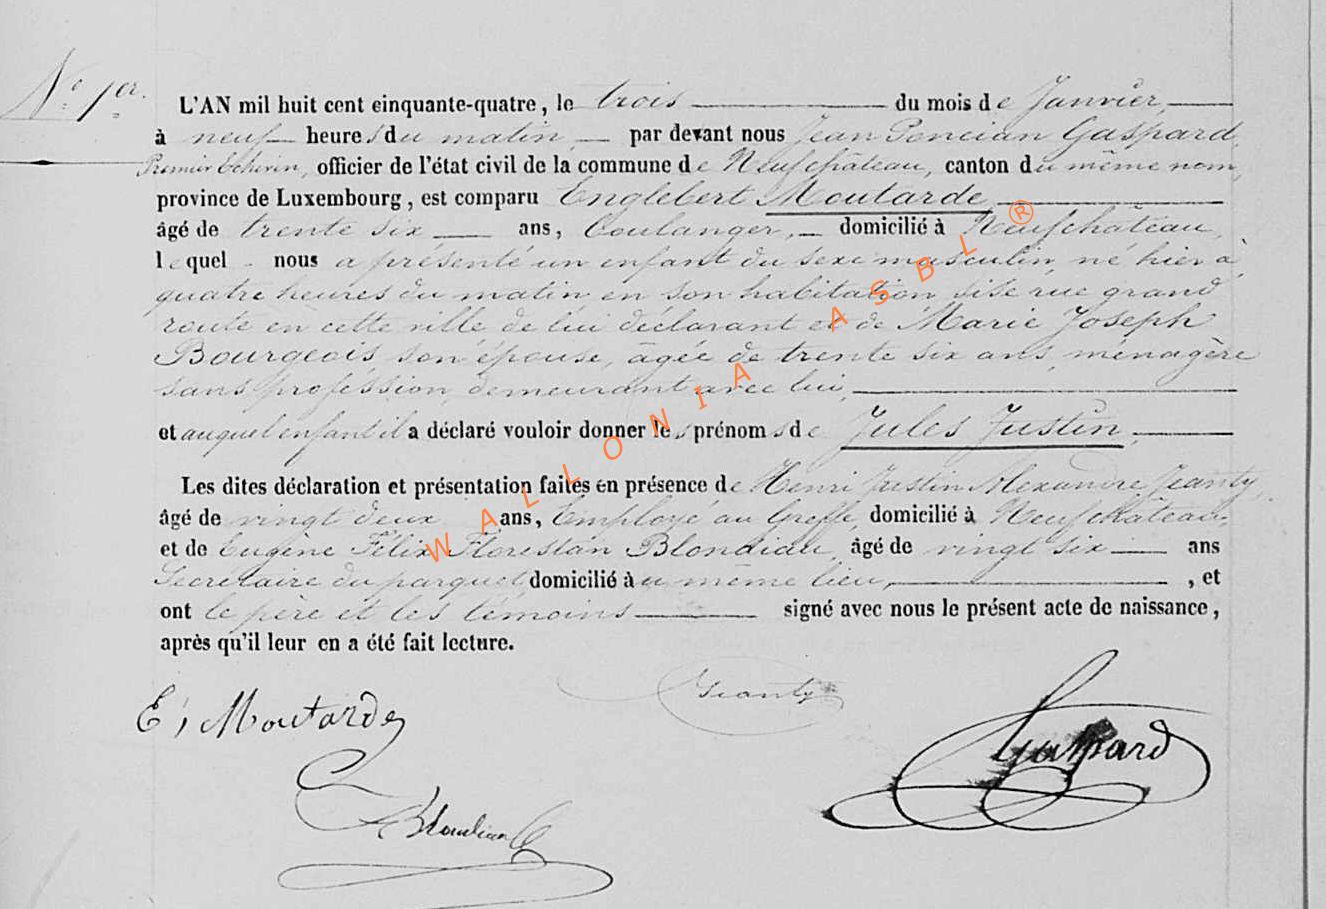 N° 1er.
L'AN mil huit cent cinquante-quatre, le trois du mois de Janvier
à neuf heures du matin, par devant nous Jean Poncian Gaspard,
Premier Echevin, officier de l'état civil de la commune de Neufchâteau, canton du même nom,
province de Luxembourg, est comparu Englebert Moutarde
âgé de trente six ans, boulanger, domicilié à Neufchâteau,
lequel nous a présenté un enfant du sexe masculin, né hier à
quatre heures du matin en son habitation sise rue grand
route en cette ville de lui déclarant et de Marie Joseph
Bourgeois son épouse, âgée de trente six ans, ménagère
sans profession demeurant avec lui,
et auquel enfant il a déclaré vouloir donner les prénoms de Jules Justin,
Les dites déclaration et présentation faites en présence de Henri Justin Alexandre Jeanty,
âgé de vingt deux ans, Employé au Greffe, domicilié à Neufchâteau,
et de Eugène Félix Florestan Blondiau, âgé de vingt six ans
Secrétaire du parquet, domicilié au même lieu, , et
ont le père et les témoins signé avec nous le présent acte de naissance,
après qu'il leur en a été fait lecture.
E, Moutarde
Jeanty
Gaspard
Blondiau
WALLONIA ASBL ®